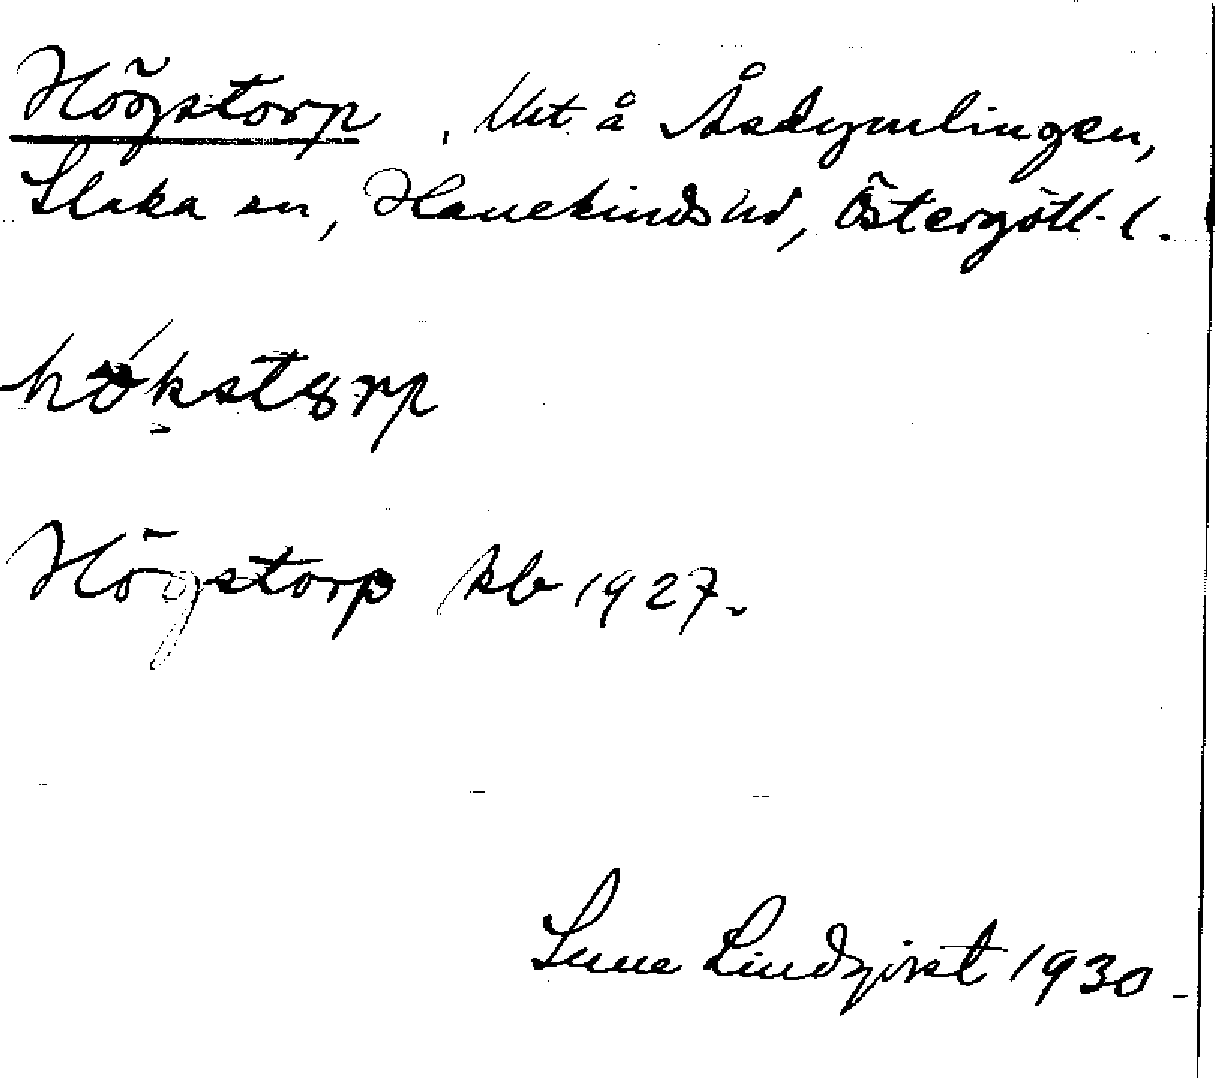 Högstorp, Utt å Åsdymlingen,
Slaka sn, Hanekinds hd, Östergötl. l.
høkstɔrp
Högstorp kb 1927.
Sune Lindqvist 1930